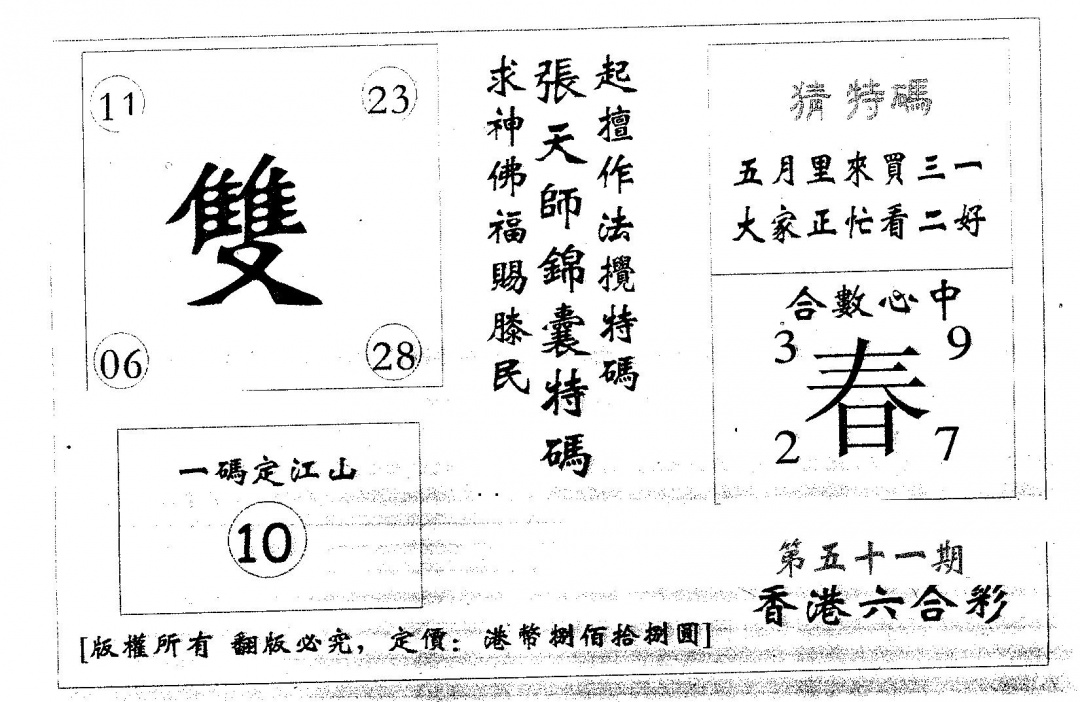 11
23
雙
06
28
一碼定江山
10
起擅作法攪特碼
張天師錦囊特碼
求神佛福賜膝民
猜特碼
五月里來買三一
大家正忙看二好
合數必中
3
9
春
2
7
第五十一期
香港六合彩
[版權所有 翻版必究, 定價: 港幣捌佰拾捌圓]